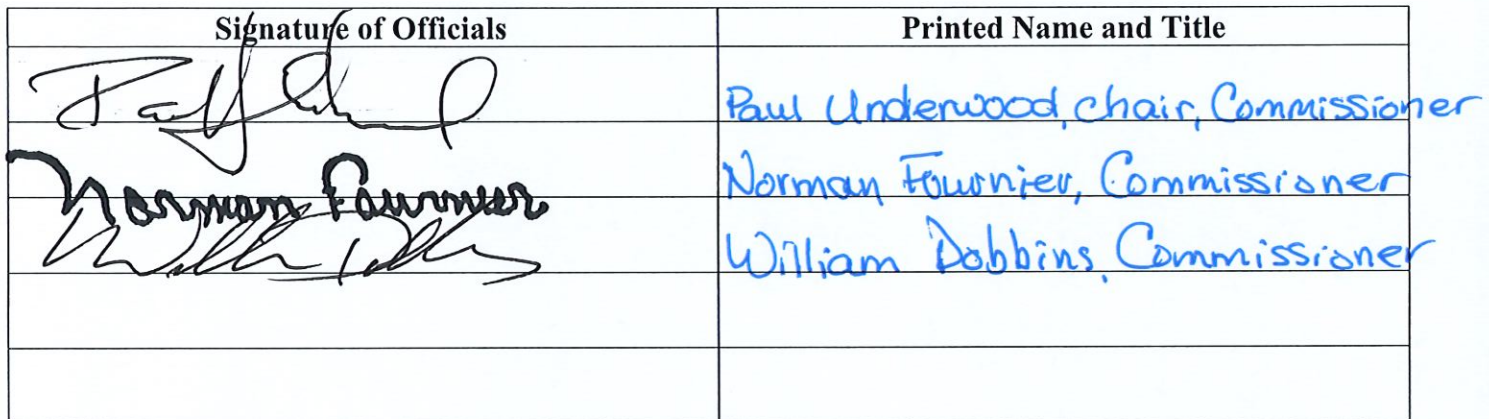 Signature of Officials Printed Name and Title
Paul Underwood, chair, Commissioner
Norman Fournier Norman Fournier, Commissioner
William Dobbins, Commissioner